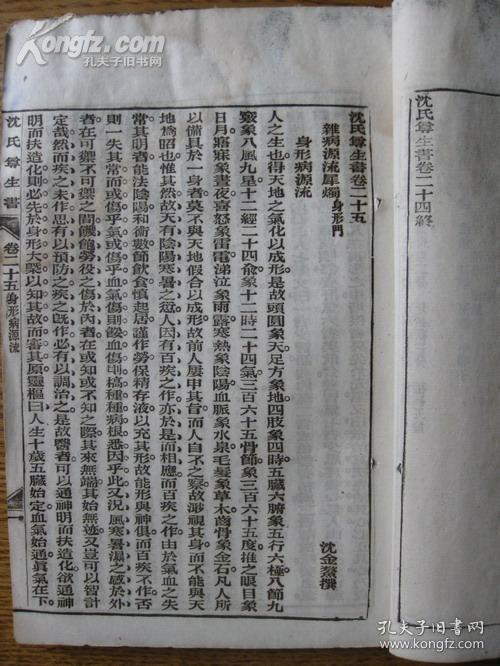 沈氏尊生書卷二十四終
沈氏尊生書卷二十五
雜病源流犀燭身形門
沈金鰲撰
身形病源流
人之生也得天地之氣化以成形是故頭圓象天足方象地四肢象四時五臟六腑象五行六極八節九
竅象八風九星十二經二十四兪象十二時二十四氣三百六十五骨節象三百六十五度推之眼目象
日月寤寐象晝夜喜怒象雷電涕泣象雨露寒熱象陰陽血脈象水泉毛髮象草木齒骨象金石凡人所
以備其於一身者莫不與天地假合以成形故前人屢申其旨而人自不之察故渺視其身而不能與天
地為昭也惟其然故天有陰陽寒暑之愆人因有百疾之作亦於是而相應而百疾之作由於氣血之失
常其明者能法陰陽和術數節飲食慎起居謹作勞保精存液以充其形故能形與神俱而百疾不作否
則一失其常而或傷乎氣或傷乎血氣傷則餒血傷則槁種種病根悉因乎此又況風寒暑濕之感於外
者在可禦不可禦之間饑飽勞役之傷於內者在或知或不知之際其來無端其始無迹又豈可以智計
定哉然而疾之未作思有以預防之疾之旣作必有以調治之是故醫者可以通神明而扶造化欲通神
明而扶造化則必先於身形大槩以知其故而審其原靈樞曰人生十歲五臟始定血氣始通眞氣在下
沈氏尊生書
卷二十五身形病源流
Kongfz.com
孔夫子旧书网
孔夫子旧书网
www.kongfz.com